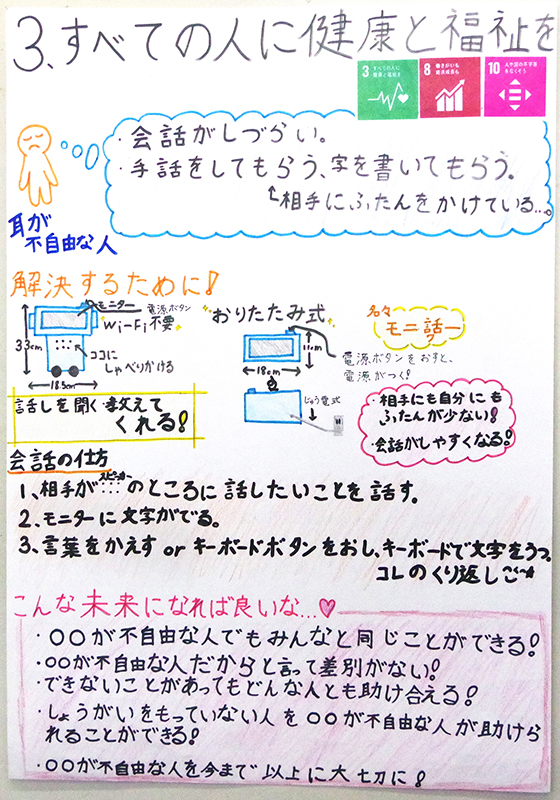 3、すべての人に健康と福祉を
3 すべての人に
健康と福祉を
8 働きがいも
経済成長も
10 人や国の不平等
をなくそう
・会話がしづらい。
・手話をしてもらう、字を書いてもらう。
↑相手にふたんをかけている…。
耳が
不自由な人
解決するために!
モニター
電源ボタン
Wi-Fi不要
33cm
ココに
しゃべりかける
18.5cm
おりたたみ式
11cm
18cm
電源ボタンをおすと、
電源がつく!
じゅう電式
名々
モニ話ー
話しを聞く・教えて
くれる!
・相手にも自分にも
ふたんが少ない!
・会話がしやすくなる!
会話の仕方
スピーカー
1、相手が のところに話したいことを話す。
2、モニターに文字がでる。
3、言葉をかえす or キーボードボタンをおし、キーボードで文字をうつ。
コレのくり返しご〜
こんな未来になれば良いな…♡
・〇〇が不自由な人でもみんなと同じことができる!
・〇〇が不自由な人だからと言って差別がない!
・できないことがあってもどんな人とも助け合える!
・しょうがいをもっていない人を〇〇が不自由な人が助けら
れることができる!
・〇〇が不自由な人を今まで以上に大切に!